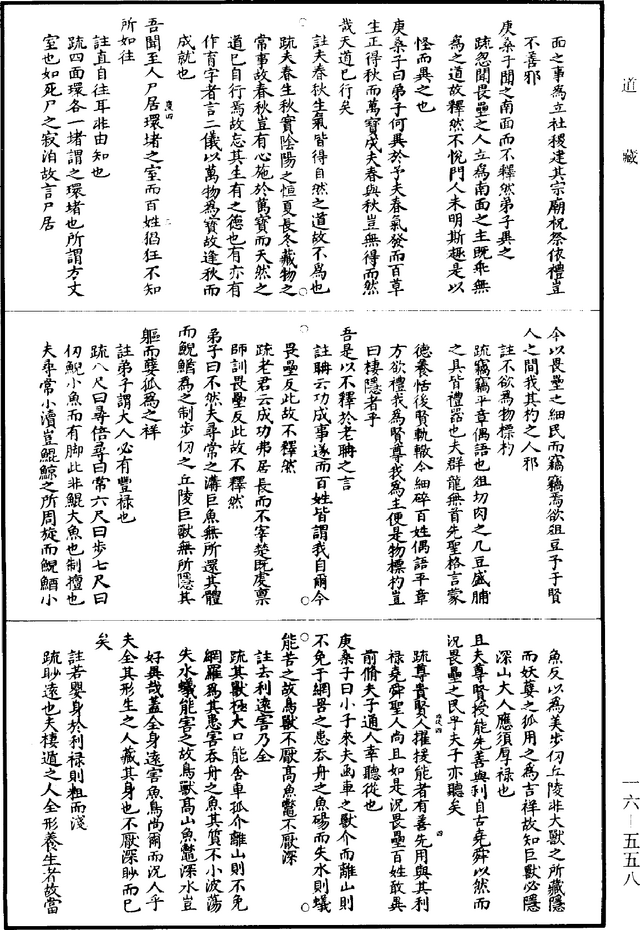 道藏
面之事為立社稷建其宗廟祝祭依禮豈
不善邪
庚桑子聞之南面而不釋然弟子異之
疏忽聞畏壘之人立為南面之主既乖無
為之道故釋然不悅門人未明斯趣是以
怪而異之也
庚桑子曰弟子何異於予夫春氣發而百草
生正得秋而萬寶成夫春與秋豈無得而然
哉天道已行矣
註夫春秋生氣皆得自然之道故不為也
疏夫春生秋實陰陽之恒夏長冬藏物之
常事故春秋豈有心施於萬寶而天然之
道已自行焉故忘其生有之德也有亦有
作育字者言二儀以萬物為寶故逢秋而
成就也
吾聞至人尸居環堵之室而百姓猖狂不知
所如往
註直自往耳非由知也
疏四面環各一堵謂之環堵也所謂方丈
室也如死尸之寂泊故言尸居
今以畏壘之細民而竊竊焉欲俎豆予于賢
人之間我其杓之人邪
註不欲為物標杓
疏竊竊平章偶語也俎切肉之几豆盛脯
之具皆禮器也夫群龍無首先聖格言蒙
德養恬後賢軌轍今細碎百姓偶語平章
方欲禮我為賢尊我為主便是物標杓豈
曰棲隱者乎
吾是以不釋於老聃之言
註聃云功成事遂而百姓皆謂我自爾今
畏壘反此故不釋然
疏老君云成功弗居長而不宰楚既虔稟
師訓畏壘反此故不釋然
弟子曰不然夫尋常之溝巨魚無所還其體
而鯢鰌為之制步仞之丘陵巨獸無所隱其
軀而㜸狐為之祥
註弟子謂大人必有豐祿也
疏八尺曰尋倍尋曰常六尺曰步七尺曰
仞鯢小魚而有脚此非鯤大魚也制擅也
夫尋常小瀆豈鯤鯨之所周旋而鯢鰌小
魚反以為美步仞丘陵非大獸之所藏隱
而妖㜸之狐用之為吉祥故知巨獸必隱
深山大人應須厚祿也
且夫尊賢授能先善與利自古堯舜以然而
況畏壘之民乎夫子亦聽矣
疏尊貴賢人擢技能者有善先用與其利
祿堯舜聖人尚且如是況畏壘百姓敢異
前脩夫子通人幸聽從也
庚桑子曰小子來夫函車之獸介而離山則
不免于網罟之患吞舟之魚碭而失水則蟻
能苦之故鳥獸不厭高魚鱉不厭深
註去利遠害乃全
疏其獸極大口能含車孤介離山則不免
網羅為其患害吞舟之魚其質不小波蕩
失水蟻能害之故鳥獸高山魚鱉深水豈
好異哉蓋全身遠害魚鳥尚爾而況人乎
夫全其形生之人藏其身也不厭深眇而已
矣
註若嬰身於利祿則粗而淺
疏眇遠也夫棲遁之人全形養生者故當
一六—五五八